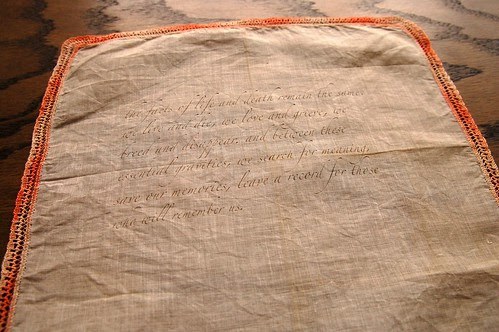 The facts of life and death remain the same.
We live and die, we love and grieve, we
breed and disappear. and between these
essential gravities, we search for meaning,
save our memories, leave a record for those
who will remember us.